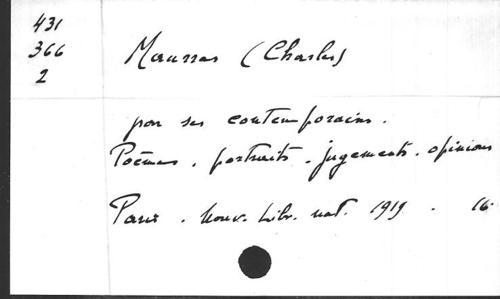 431
366
2
Maurras (Charles)
par ses contemporains.
Poèmes. portraits. jugements. opinions
Paris. Nouv. Libr. nat. 1919. 16